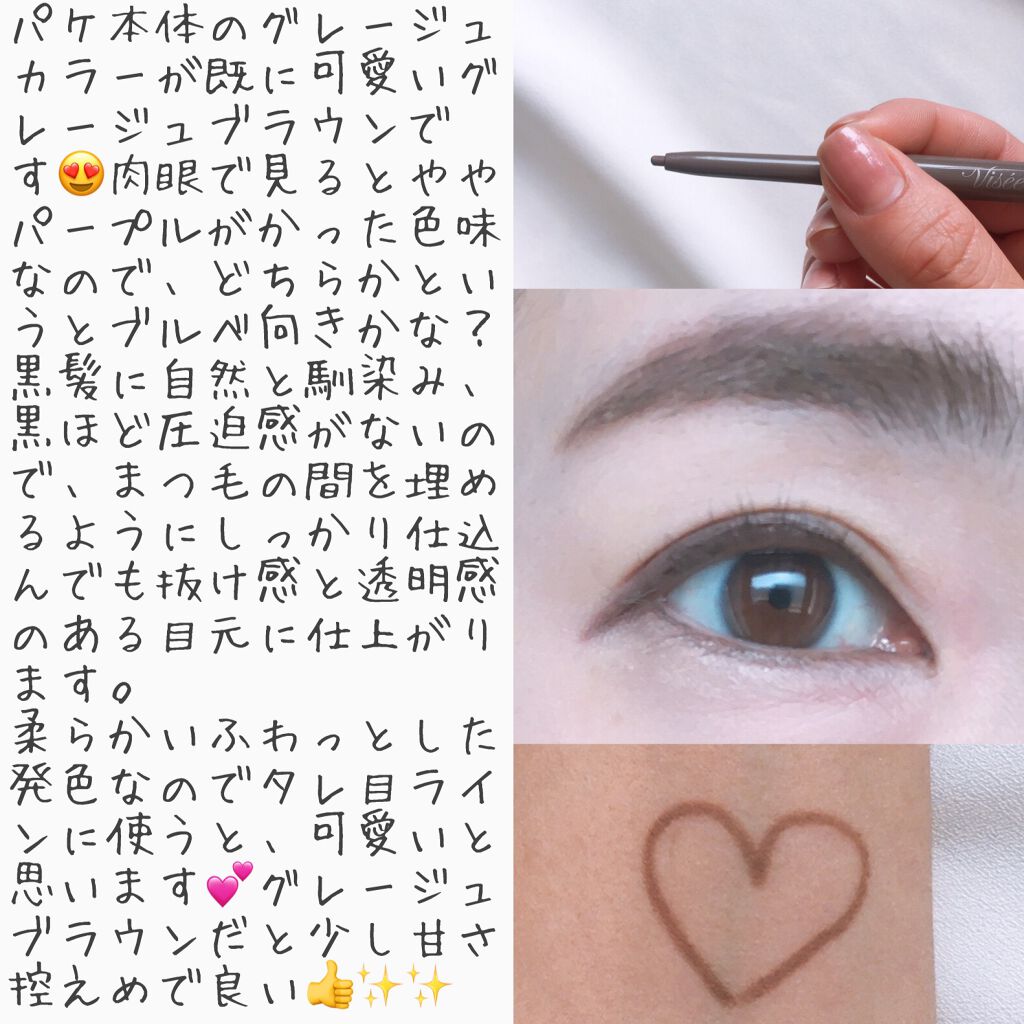 パケ本体のグレージュ
カラーが既に可愛いグ
レージュブラウンで
す😍肉眼で見るとやや
パープルがかった色味
なので、どちらかとい
うとブルベ向きかな?
黒髪に自然と馴染み、
黒ほど圧迫感がないの
で、まつ毛の間を埋め
るようにしっかり仕込
んでも抜け感と透明感
のある目元に仕上がり
ます。
柔らかいふわっとした
発色なのでタレ目ライ
ンに使うと、可愛いと
思います💕グレージュ
ブラウンだと少し甘さ
控えめで良い👍✨✨
Visée